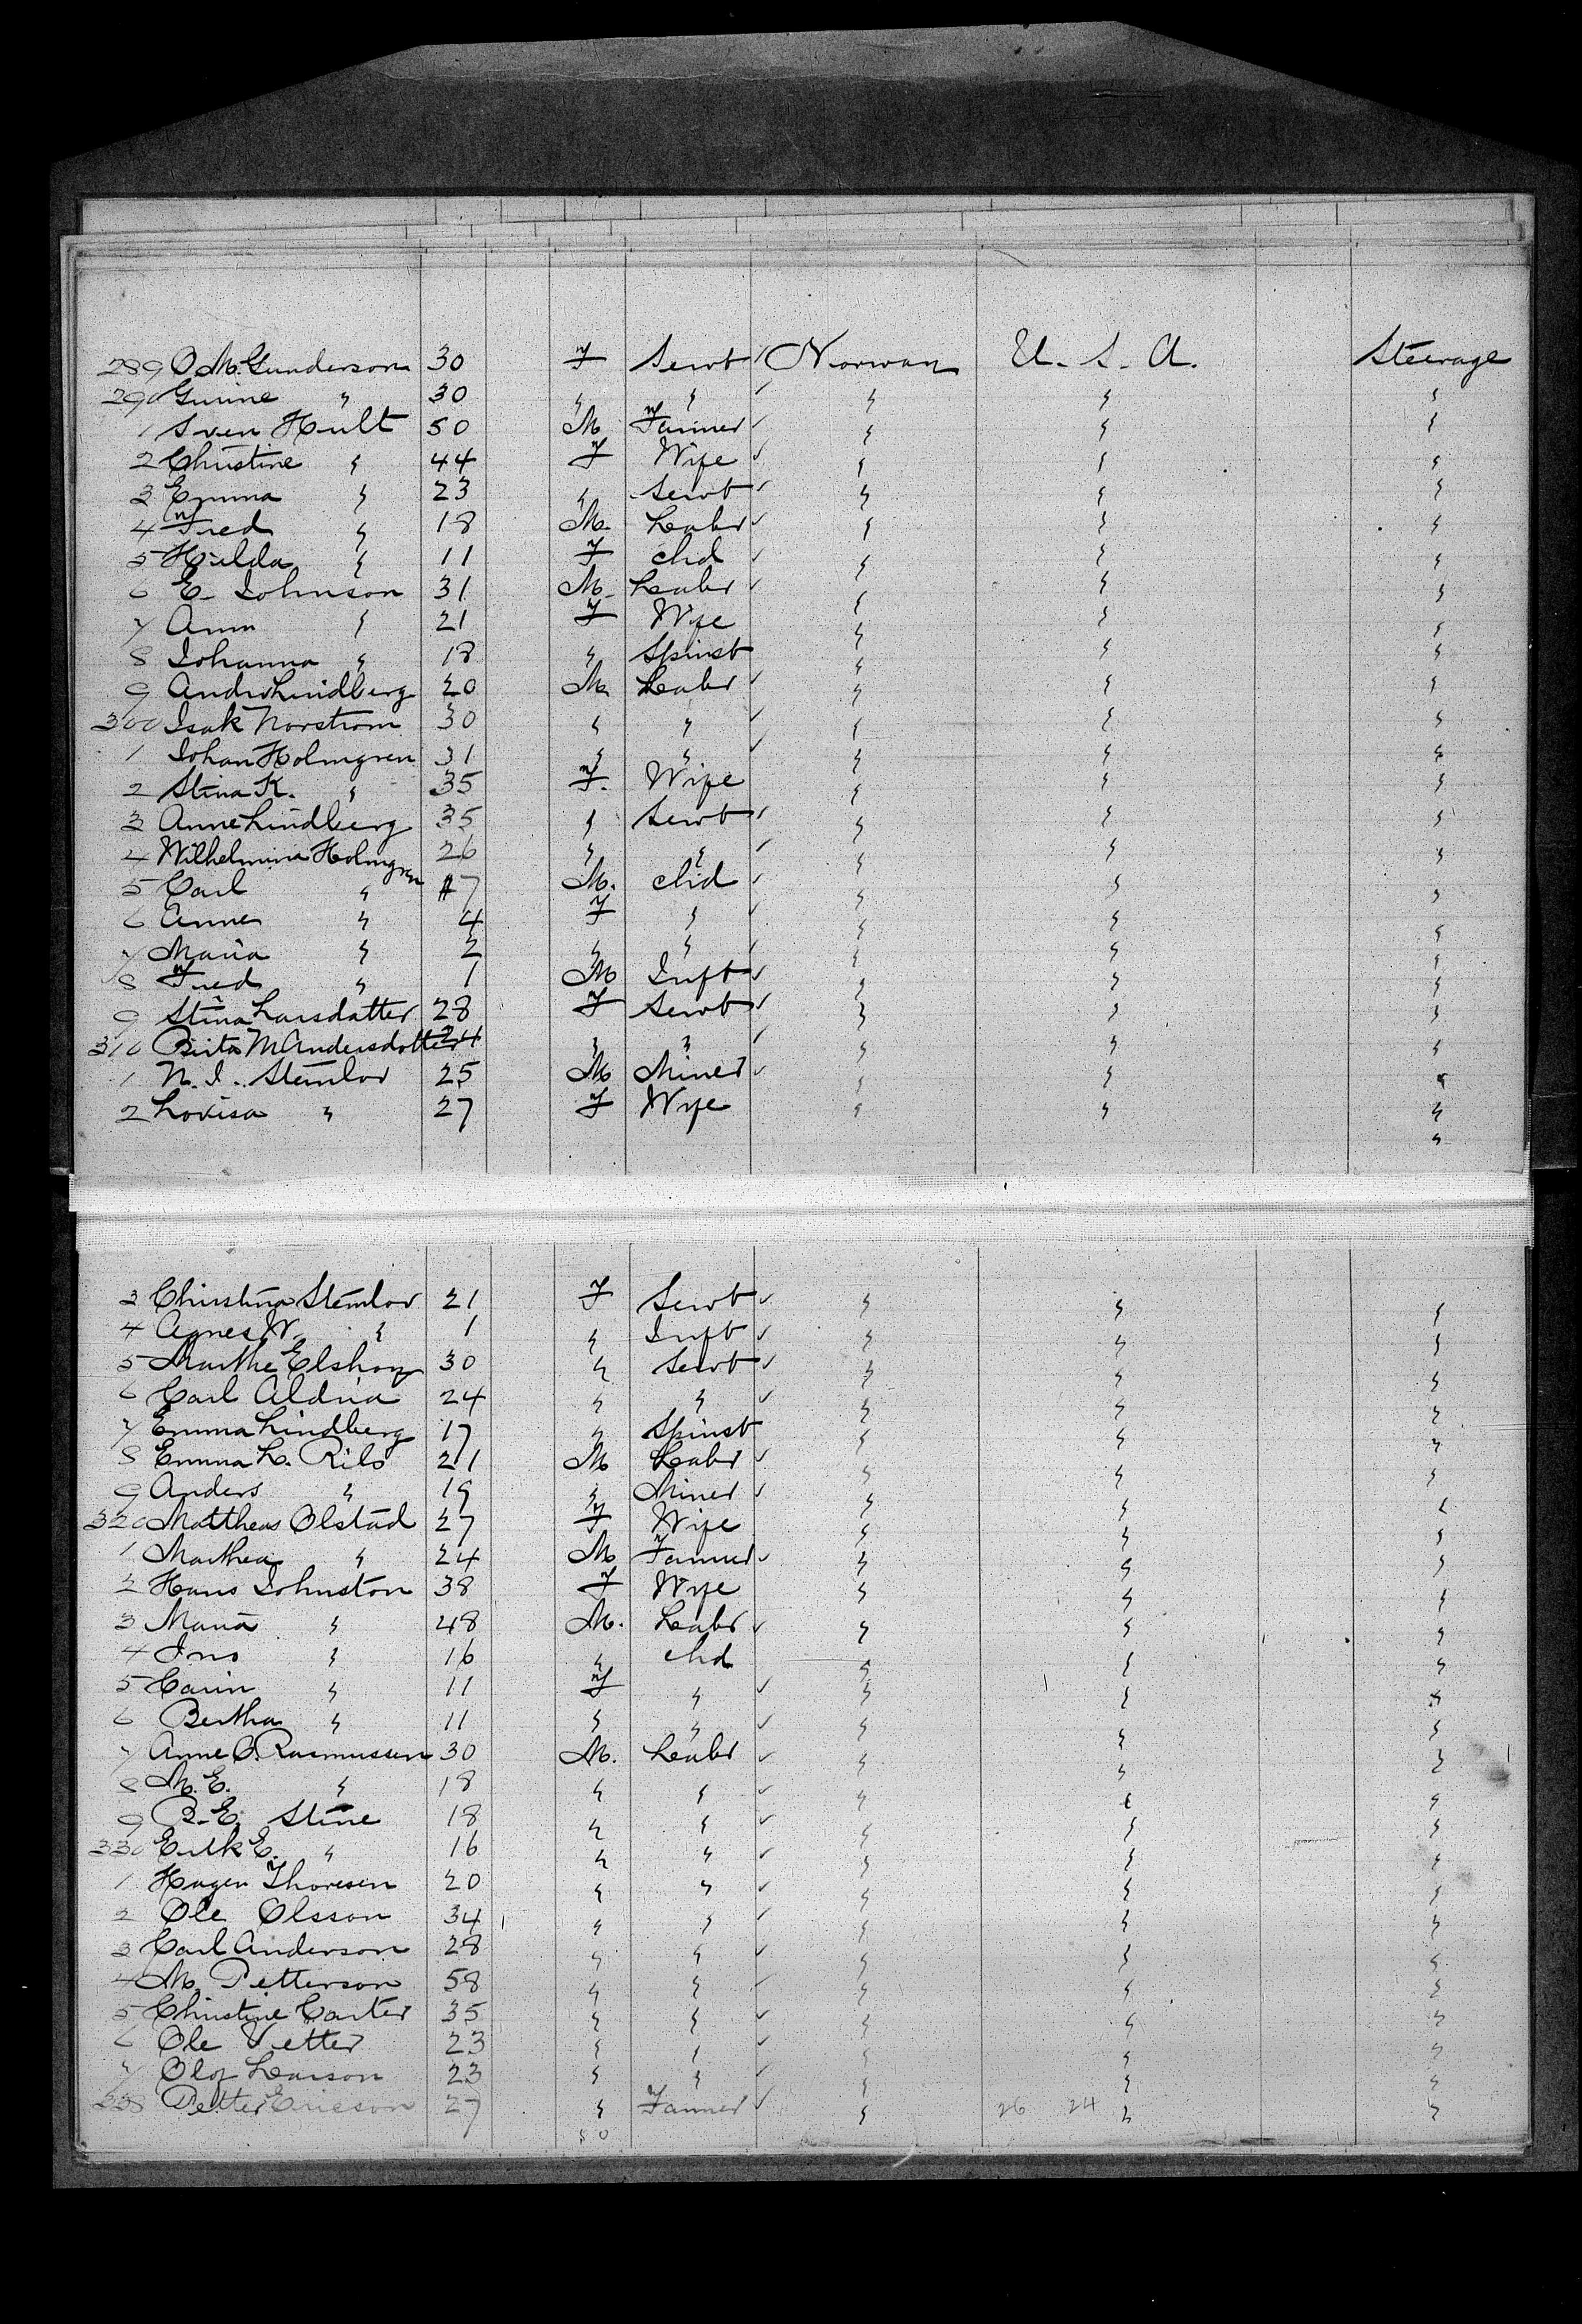 289 O. M. Gunderson 30 F Servt ✓ Norway U. S. A. Steerage
290 Gurine " 30 " " ✓ " " "
1 Sven Hult 50 M Farmer ✓ " " "
2 Christine " 44 F Wife ✓ " " "
3 Emma " 23 " Servt ✓ " " "
4 Fred " 18 M. Labr ✓ " " "
5 Hulda " 11 F chd ✓ " " "
6 E. Johnson 31 M. Labr ✓ " " "
7 Ann " 21 F Wife " " "
8 Johanna " 18 " Spinst " " "
9 Andr Lindberg 20 M Labr ✓ " " "
300 Isak Norstrom 30 " " ✓ " " "
1 Johan Holmgren 31 " " ✓ " " "
2 Stina K. " 35 F. Wife " " "
3 Anne Lindberg 35 " Servt ✓ " " "
4 Wilhelmina Holmgren 26 " " ✓ " " "
5 Carl " 7 M. chd ✓ " " "
6 Anne " 4 F " ✓ " " "
7 Maria " 2 " " ✓ " " "
8 Fred " 1 M Inft ✓ " " "
9 Stina Larsdatter 28 F Servt ✓ " " "
310 Birta M Andersdotter 24 " " ✓ " " "
1 N. J. Stemlor 25 M Miner ✓ " " "
2 Lovisa " 27 F Wife " " "
"
3 Christina Stemlor 21 F Servt ✓ " " "
4 Agnes W. " 1 " Inft ✓ " " "
5 Marthe Elshoy 30 " Servt ✓ " " "
6 Carl Aldria 24 " " ✓ " " "
7 Emma Lindberg 17 " Spinst " " "
8 Emma L. Rils 21 M Labr ✓ " " "
9 Anders " 19 " Miner ✓ " " "
320 Mattheas Olstad 27 F Wife " " "
1 Marthea " 24 M Farmer ✓ " " "
2 Hans Johnston 38 F Wife " " "
3 Maria " 48 M. Labr ✓ " " "
4 Jns " 16 " chd " " "
5 Carin " 11 F " ✓ " " "
6 Bertha " 11 " " ✓ " " "
7 Anne O. Rasmussen 30 M. Labr ✓ " " "
8 M. E. " 18 " " ✓ " " "
9 B. E. Stine 18 " " ✓ " " "
330 Erik E. " 16 " " ✓ " " "
1 Hagen Thoresen 20 " " ✓ " " "
2 Ole Olsson 34 " " ✓ " " "
3 Carl Anderson 28 " " ✓ " " "
4 M. Petterson 58 " " ✓ " " "
5 Christine Carter 35 " " ✓ " " "
6 Ole Vetter 23 " " ✓ " " "
7 Olof Larson 23 " " ✓ " " "
338 Petter Ericson 27 " Farmer ✓ " 26 24 " "
50